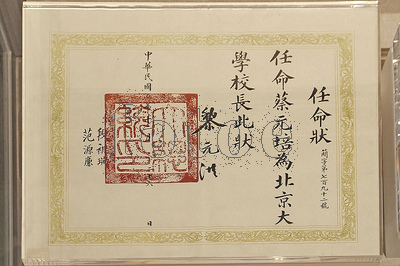 任命狀
簡字第七百九十二號
任命蔡元培為北京大
學校長此狀
黎元洪
中華民國
日
范源廉